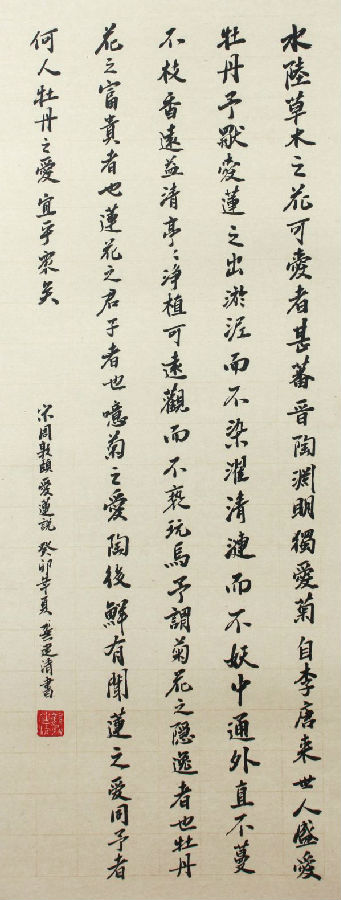 水陸草木之花可愛者甚蕃晉陶淵明獨愛菊自李唐来世人盛愛
牡丹予獨愛蓮之出淤泥而不染濯清漣而不妖中通外直不蔓
不枝香遠益清亭〻淨植可遠觀而不褻玩焉予謂菊花之隱逸者也牡丹
花之富貴者也蓮花之君子者也噫菊之愛陶後鮮有聞蓮之愛同予者
何人牡丹之愛宜乎衆矣
宋周敦頤愛蓮說 癸卯夏 龔清書